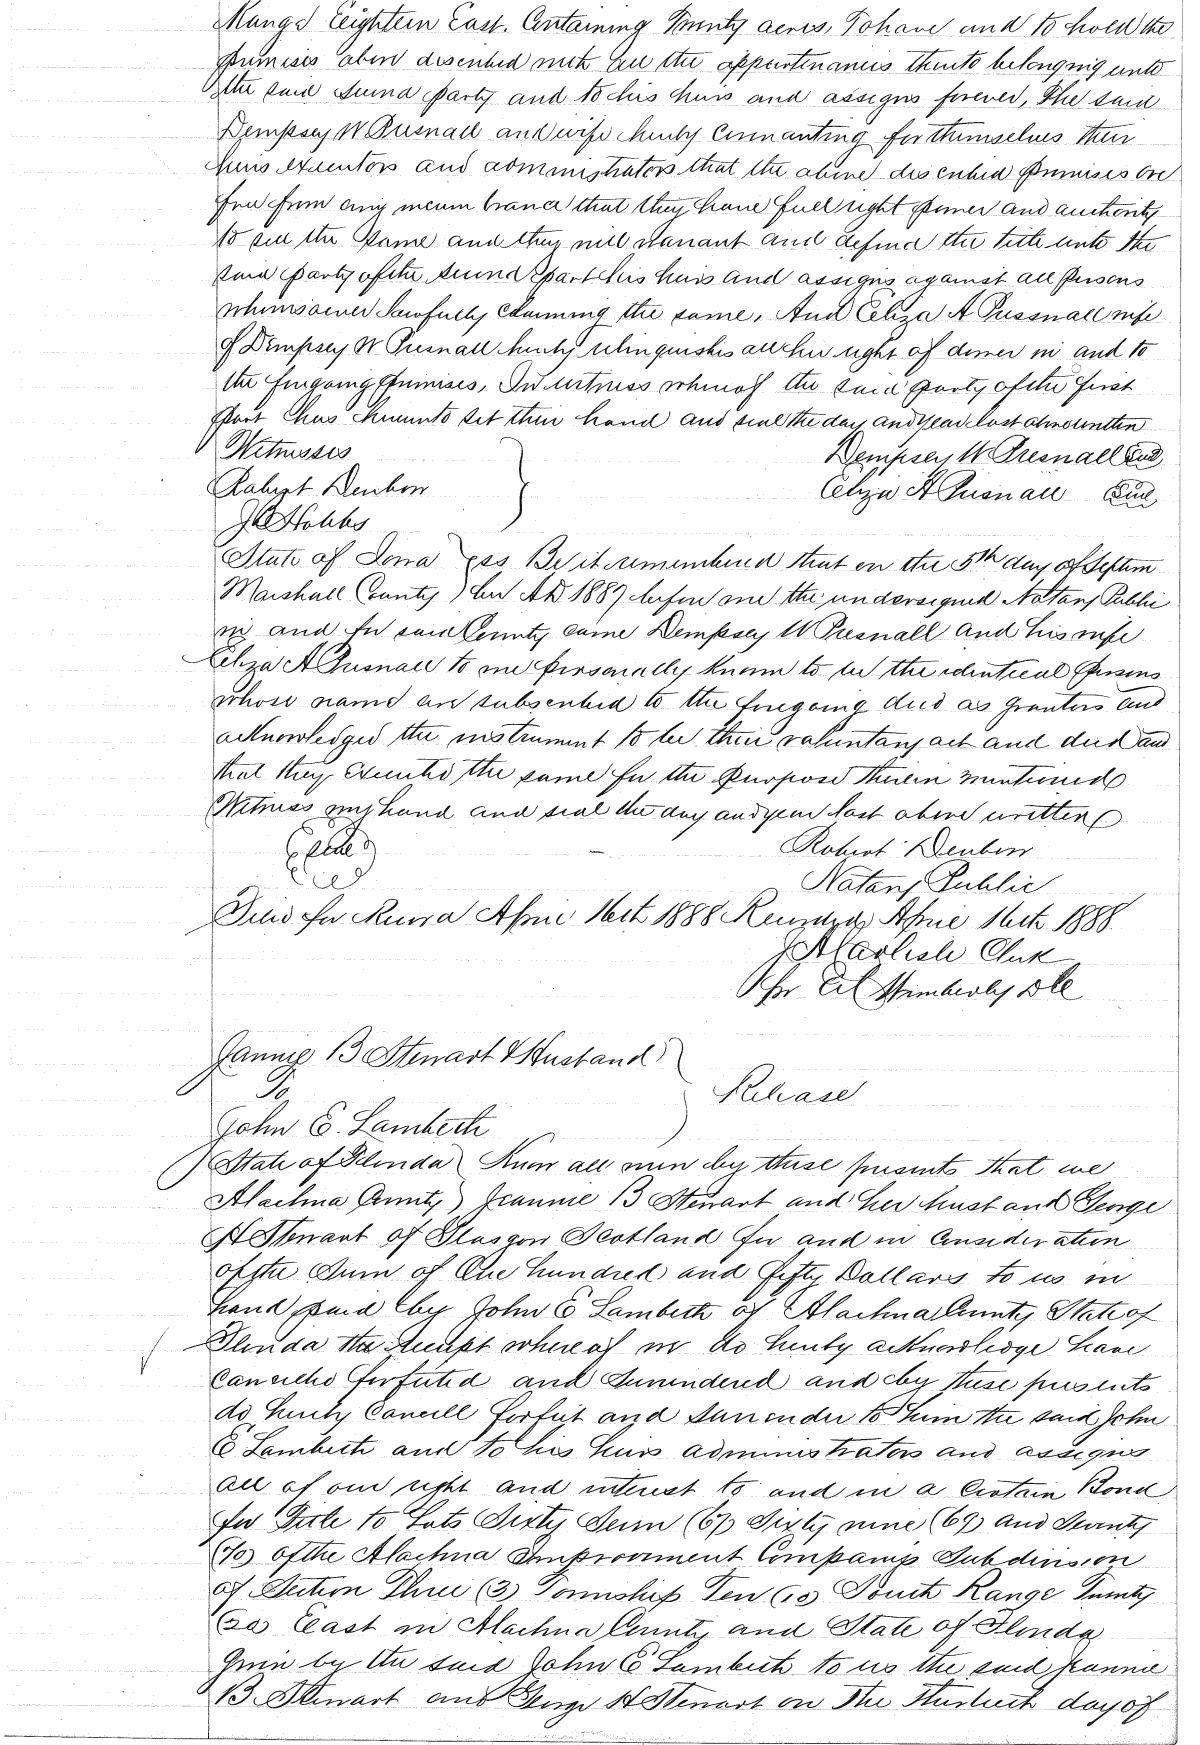 Range Eighteen East. Containing Twenty acres, To have and to hold the
premises above described with all the appurtenances thereto belonging unto
the said second party and to his heirs and assigns forever, The said
Dempsey W Presnall and wife hereby covenanting for themselves their
heirs executors and administrators that the above described premises are
free from any incumbrance that they have full right power and authority
to sell the same and they will warrant and defend the title unto the
said party of the second part his heirs and assigns against all persons
whomsoever lawfully claiming the same, And Eliza A Presnall wife
of Dempsey W Presnall hereby relinquishes all her right of dower in and to
the foregoing premises, In witness whereof the said party of the first
part has hereunto set their hand and seal the day and year last above written
Witnesses
Dempsey W Presnall Seal
Robert Denbow
Eliza A Presnall Seal
J Hobbs
State of Iowa } ss Be it remembered that on the 5th day of Septem
Marshall County } ber AD 1887 before me the undersigned Notary Public
in and for said County came Dempsey W Presnall and his wife
Eliza A Presnall to me personally known to be the identical persons
whose name are subscribed to the foregoing deed as grantors and
acknowledged the instrument to be their voluntary act and deed and
that they executed the same for the purpose therein mentioned
Witness my hand and seal the day and year last above written
Robert Denbow
Notary Public
Filed for Record April 16th 1888 Recorded April 16th 1888.
J A Carlisle Clerk
Per C L Wimberly D C
Jannie B Stewart & Husband
To
Release
John E. Lambeth
State of Florida } Know all men by these presents that we
Alachua County } Jeannie B Stewart and her husband George
H Stewart of Glasgow Scotland for and in consideration
of the sum of One hundred and fifty Dollars to us in
hand paid by John E Lambeth of Alachua County State of
Florida the receipt whereof we do hereby acknowledge have
Cancelled forfeited and surrendered and by these presents
do hereby Cancell forfeit and surrender to him the said John
E Lambeth and to his heirs administrators and assigns
all of our right and interest to and in a Certain Bond
for Title to Lots Sixty Seven (67) Sixty nine (69) and Seventy
(70) of the Alachua Improvement Companys Subdivision
of Section Three (3) Township Ten (10) South Range Twenty
(20) East in Alachua County and State of Florida
given by the said John E Lambeth to us the said Jeannie
B. Stewart and George H Stewart on the Thirtieth day of